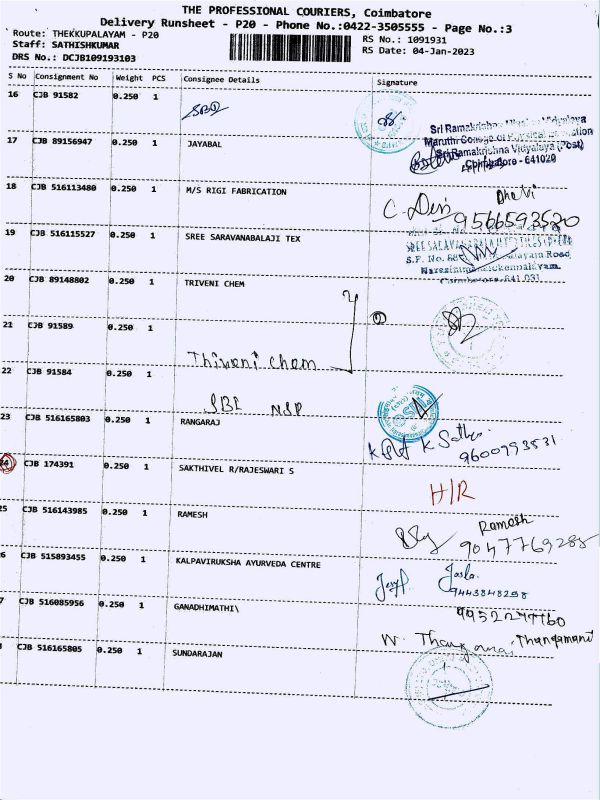 THE PROFESSIONAL COURIERS, Coimbatore
Delivery Runsheet - P20 - Phone No.:0422-3505555 - Page No.:3
Route: THEKKUPALAYAM - P20
RS No.: 1091931
Staff: SATHISHKUMAR
RS Date: 04-Jan-2023
DRS No.: DCJB109193103
S No Consignment No Weight PCS Consignee Details Signature
16 CJB 91582 0.250 1
SBI
Maruthi College of Physical Education
Sri Ramakrishna Vidyalaya (Post)
Coimbatore - 641020
17 CJB 89156947 0.250 1 JAYABAL
18 CJB 516113480 0.250 1 M/S RIGI FABRICATION
C. Devi Dhevi
9566593520
19 CJB 516115527 0.250 1 SREE SARAVANABALAJI TEX
S.F. No. Road,
20 CJB 89148802 0.250 1 TRIVENI CHEM
21 CJB 91589 0.250 1
Thiveni Chem
22 CJB 91584 0.250 1
SBI NSP
23 CJB 516165803 0.250 1 RANGARAJ
K. Sathe
9600993531
24 CJB 174391 0.250 1 SAKTHIVEL R/RAJESWARI S
H/R
25 CJB 516143985 0.250 1 RAMESH
Ramesh
9047769285
6 CJB 515893455 0.250 1 KALPAVIRUKSHA AYURVEDA CENTRE
Jasla.
9443848298
7 CJB 516085956 0.250 1 GANADHIMATHI\
9952277760
W. Thangamani Thangamani
CJB 516165805 0.250 1 SUNDARAJAN